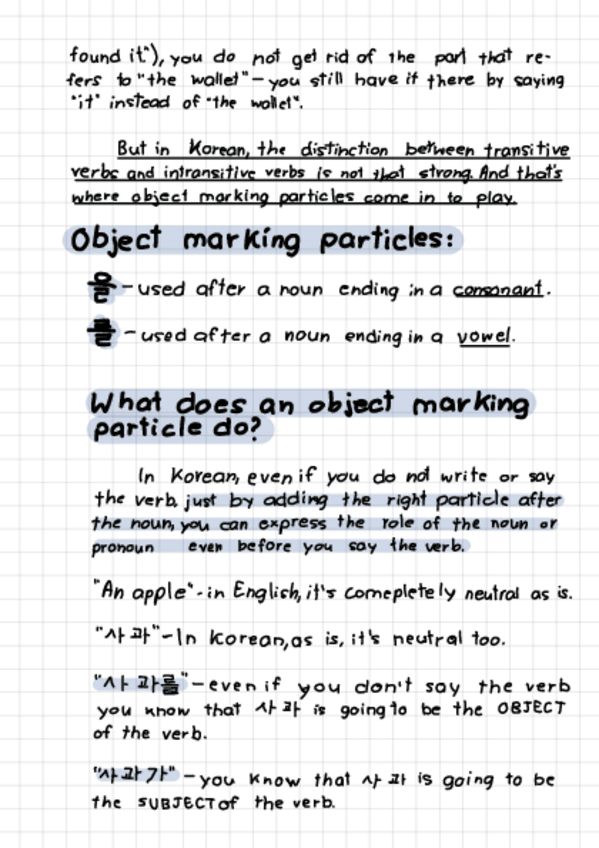 found it"), you do not get rid of the part that re-
fers to "the wallet" – you still have it there by saying
"it" instead of "the wallet".
But in Korean, the distinction between transitive
verbs and intransitive verbs is not that strong. And that's
where object marking particles come in to play.
Object marking particles:
을 – used after a noun ending in a consonant.
를 – used after a noun ending in a vowel.
What does an object marking
particle do?
In Korean, even if you do not write or say
the verb, just by adding the right particle after
the noun, you can express the role of the noun or
pronoun even before you say the verb.
"An apple" - in English, it's comepletely neutral as is.
"사과" – In Korean, as is, it's neutral too.
"사과를" – even if you don't say the verb
you know that 사과 is going to be the OBJECT
of the verb.
"사과가" – you know that 사과 is going to be
the SUBJECT of the verb.